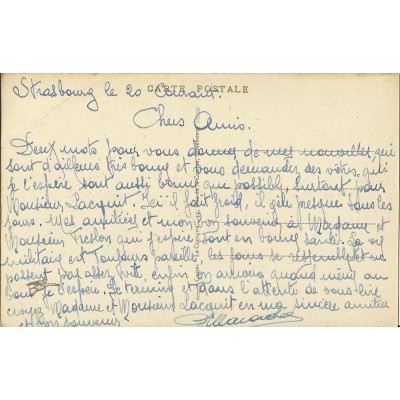 CARTE POSTALE
Strasbourg le 20 Courant.
Chers Amis.
Deux mots pour vous donner de mes nouvelles, qui
sont d'ailleurs très bonnes et vous demander des vôtres, qui
je l'espère sont aussi bonnes que possible, surtout pour
Monsieur Lacquit. Ici il fait froid, il gèle presque tous les
jours. Mes amitiées et mon bon souvenir à Madame et
Monsieur que j'espère sont en bonne santé. La vie
militaire est toujours pareille les jours se ressemblent et ne
passent pas assez vite, enfin on arrivera quand même au
bout je l'espère. Je termine et dans l'attente de vous lire
croyez Madame et Monsieur Lacquit en ma sincère amitiée
et bon souvenir